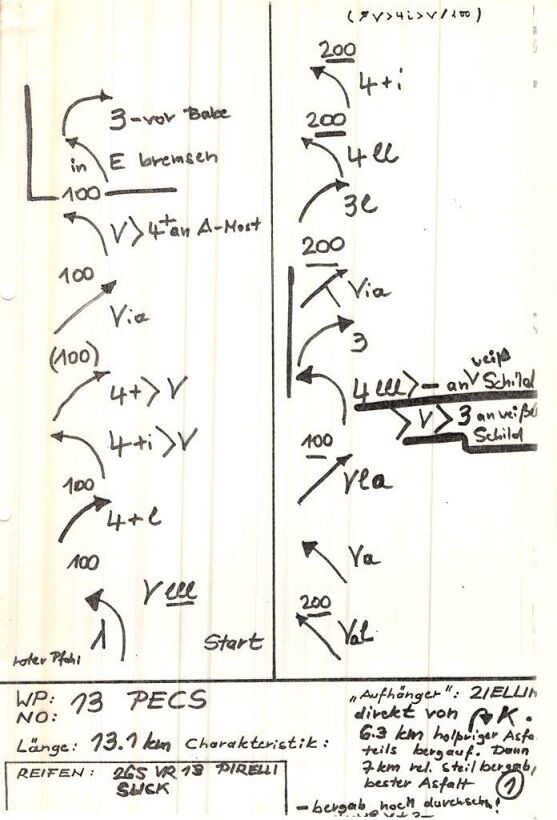 3-vor Babe
in E bremsen
100
V>4+an A-Mast
100
Via
(100)
4+>V
4+i>V
100
4+l
100
V lll
roter Pfahl
Start
(V>4i>V/100)
200
4+i
200
4ll
3l
200
Via
3
4lll>- an weiß Schild
>V>3 an weiße
Schild
100
Vla
Va
200
Val
WP: 13 PECS
NO:
Länge: 13.1 km Charakteristik:
REIFEN: 265 VR 13 PIRELLI
SLICK
"Aufhänger": 2/ELLIN
direkt von K.
6.3 km holpriger Asfa
teils bergauf. Dann
7 km rel. steil bergab,
bester Asfalt
1
- bergab noch durchsch!